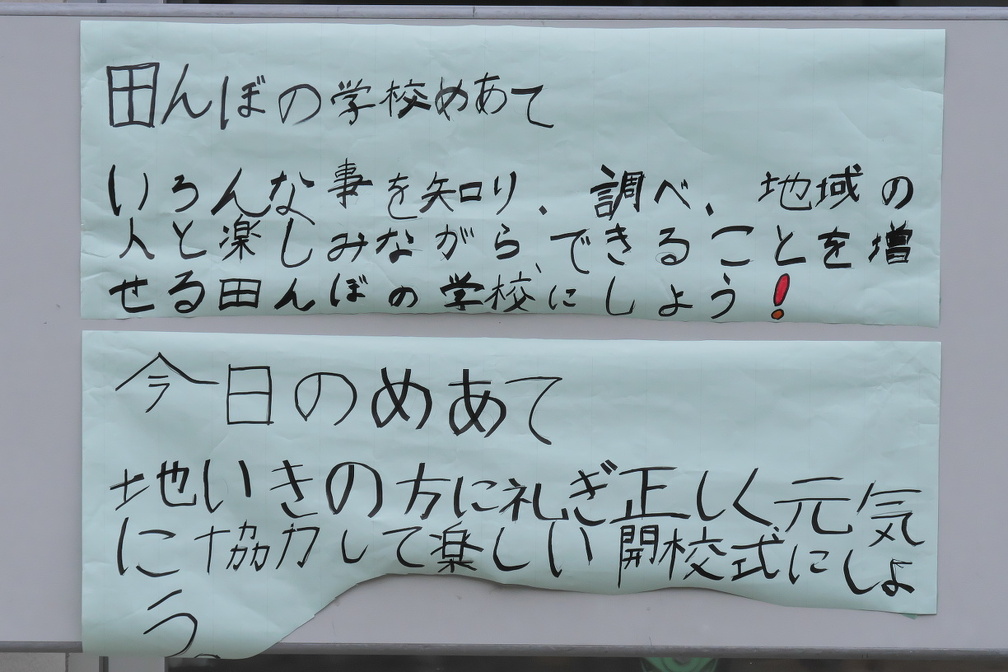 田んぼの学校めあて
いろんな事を知り、調べ、地域の
人と楽しみながらできることを増
せる田んぼの学校にしよう!
今日のめあて
地いきの方に礼ぎ正しく元気
に協力して楽しい開校式にしょ
う。